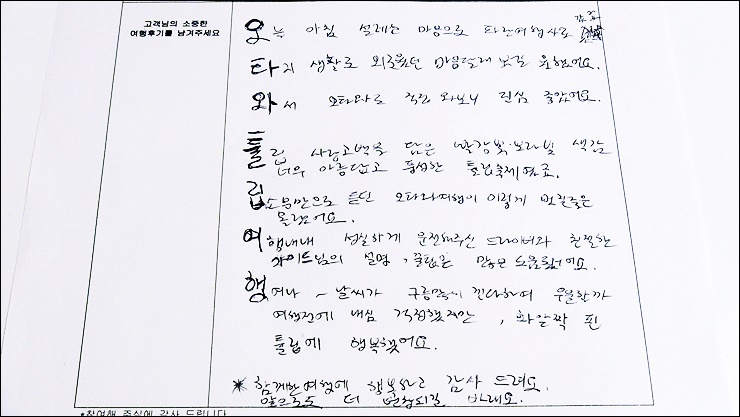 고객님의 소중한
여행후기를 남겨주세요
오늘 아침 설레는 마음으로 타운여행사로
타지 생활로 외로웠던 마음달래 보길 원했어요.
와서 오타와로 직접 와보니 진심 좋았어요.
튤립 사랑고백을 담은 빨강빛·보라빛 색감
너무 아름답고 풍성한 튤립축제였고.
립 소문만으로 듣던 오타와여행이 이렇게 멋질줄은
몰랐어요.
여행내내 성실하게 운전해주신 드라이버와 친절한
가이드님의 설명, 꿀팁은 많은 도움됬어요.
행여나 ~ 날씨가 구름많이 낀다하여 우울할까
여행전에 내심 걱정했지만, 화알짝 핀
튤립에 행복했어요.
* 함께한여행에 행복하고 감사 드려요.
앞으로도 더 번창되길 바래요.
*참여해 주심에 감사 드립니다